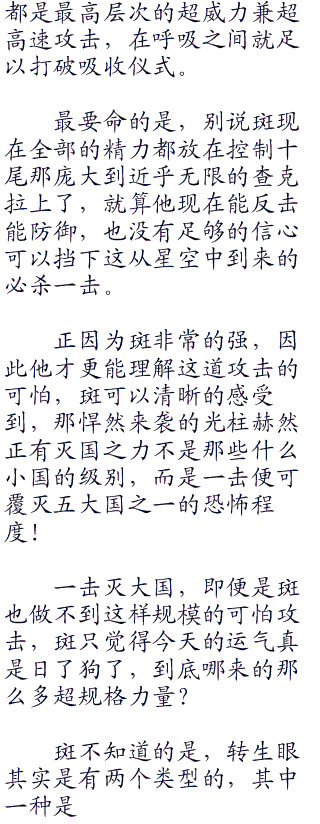 都是最高层次的超威力兼超
高速攻击，在呼吸之间就足
以打破吸收仪式。
最要命的是，别说斑现
在全部的精力都放在控制十
尾那庞大到近乎无限的查克
拉上了，就算他现在能反击
能防御，也没有足够的信心
可以挡下这从星空中到来的
必杀一击。
正因为斑非常的强，因
此他才更能理解这道攻击的
可怕，斑可以清晰的感受
到，那悍然来袭的光柱赫然
正有灭国之力不是那些什么
小国的级别，而是一击便可
覆灭五大国之一的恐怖程
度！
一击灭大国，即便是斑
也做不到这样规模的可怕攻
击，斑只觉得今天的运气真
是日了狗了，到底哪来的那
么多超规格力量？
斑不知道的是，转生眼
其实是有两个类型的，其中
一种是